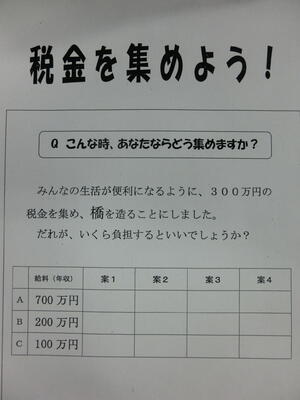 税金を集めよう!
Q こんな時、あなたならどう集めますか?
みんなの生活が便利になるように、300万円の
税金を集め、橋を造ることにしました。
だれが、いくら負担するといいでしょうか?
給料(年収) 案1 案2 案3 案4
A 700万円
B 200万円
C 100万円